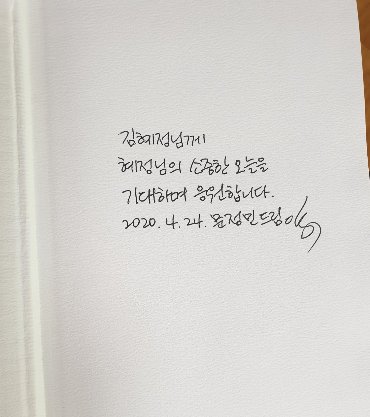 김혜정님께
혜정님의 소중한 오늘을
기대하며 응원합니다.
2020. 4. 24. 윤정민드림